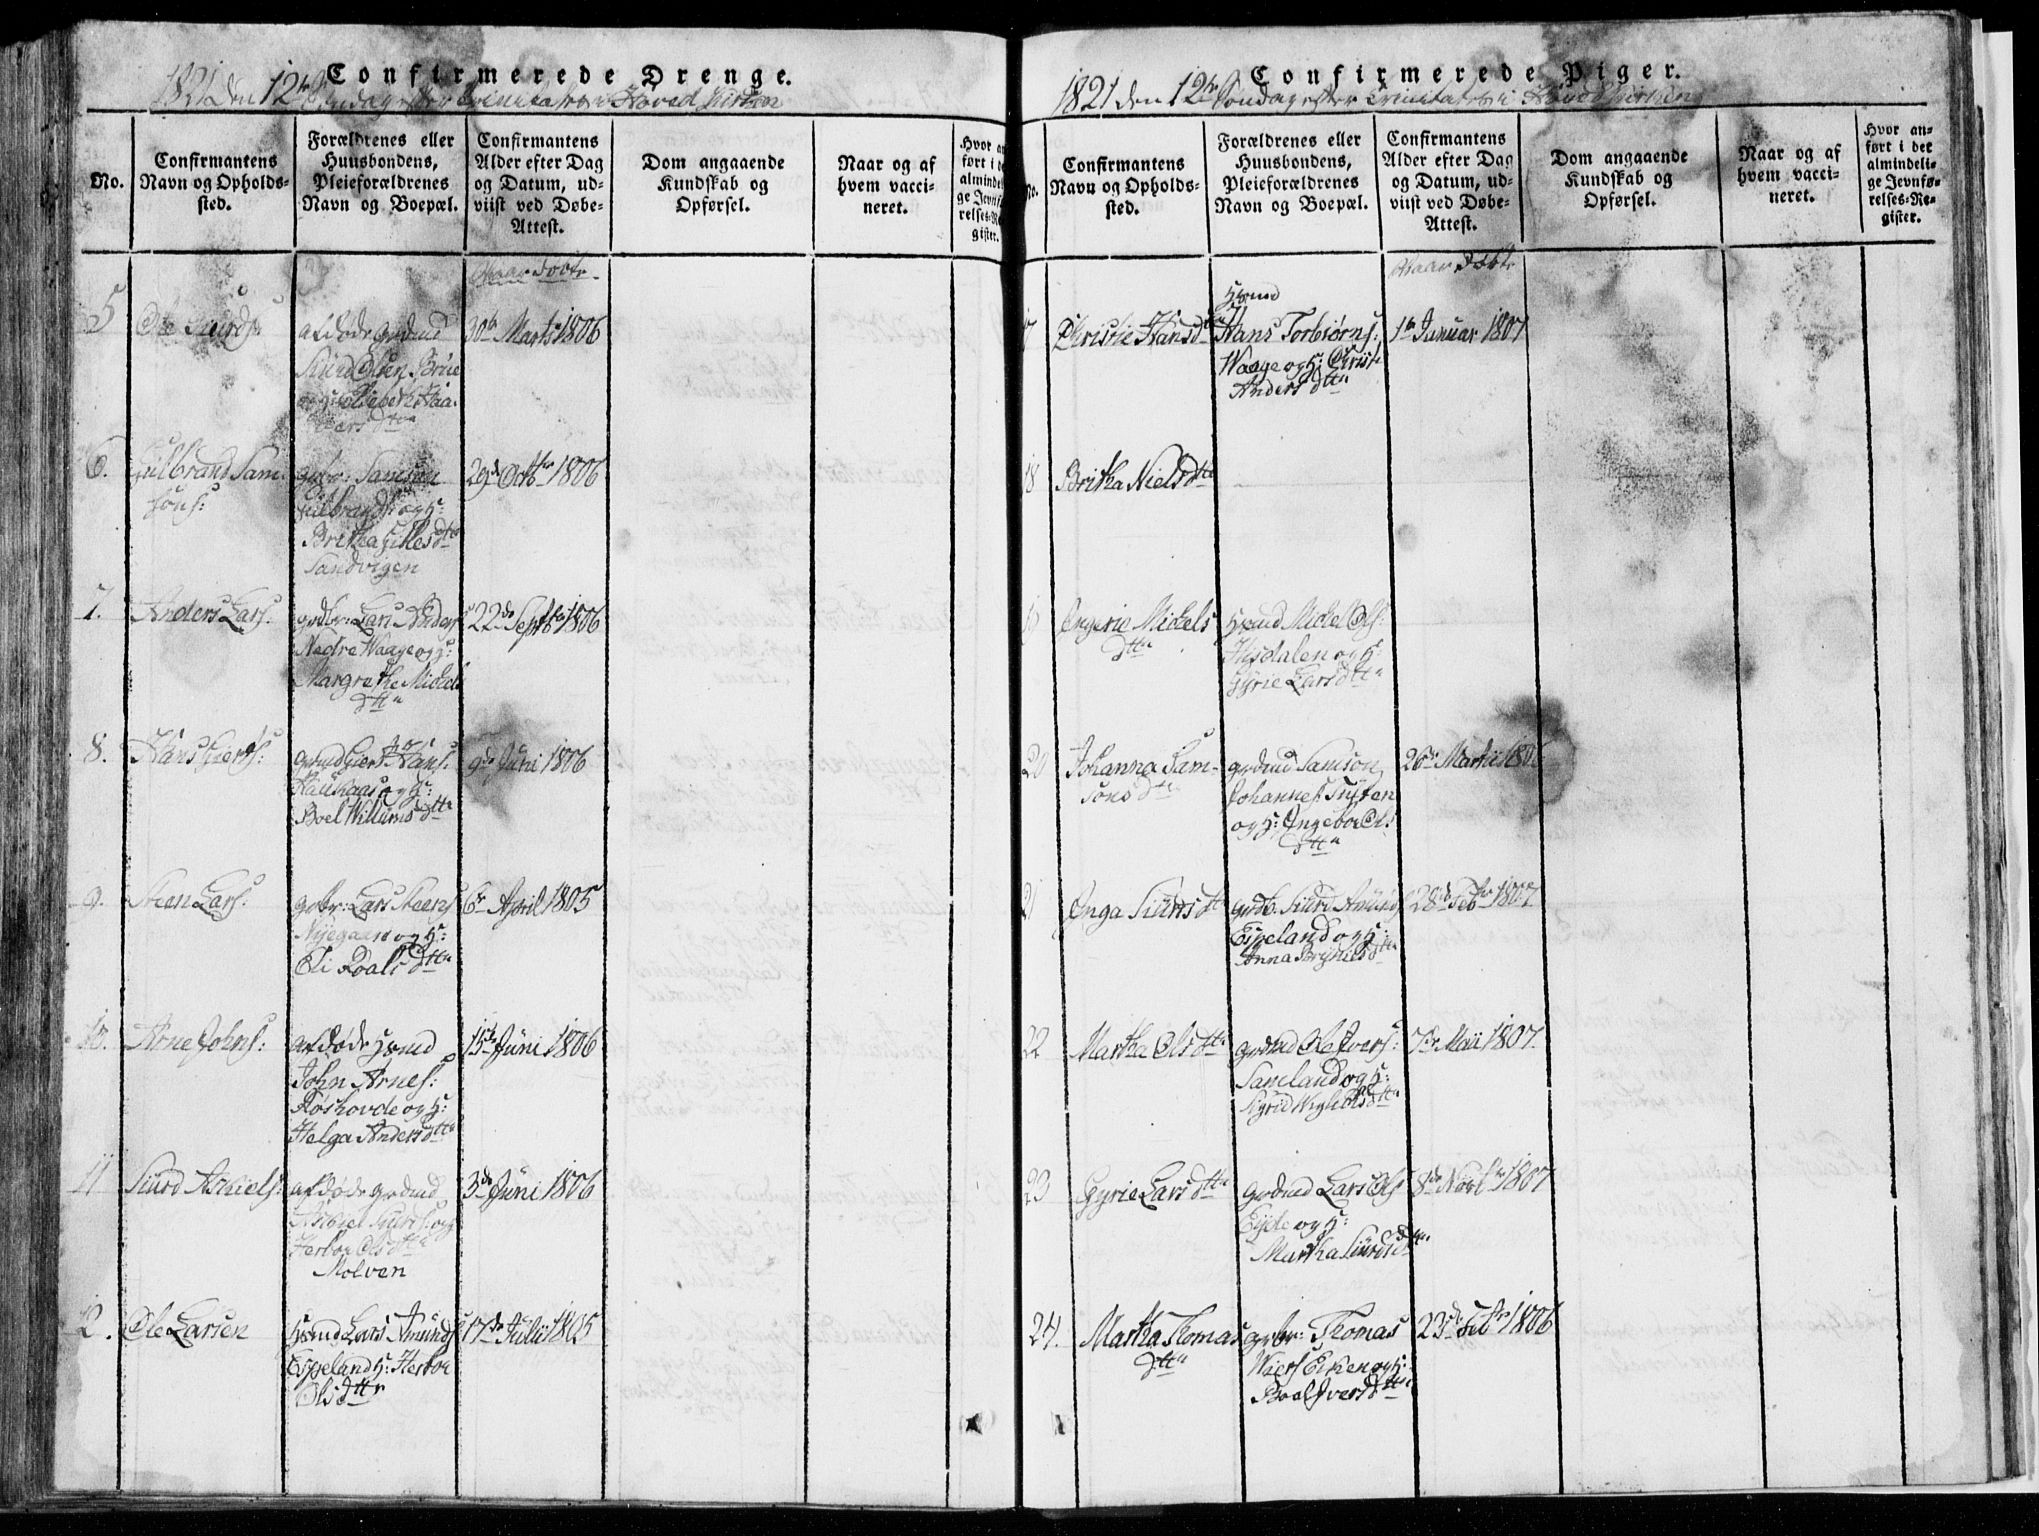 Confirmerede Drenge.
1821 den 12te Søndag efter Trinitatis i Hoved Kirken
No.
Confirmantens
Navn og Opholds-
sted.
Forældrenes eller
Huusbondens,
Pleieforældrenes
Navn og Boepæl.
Confirmantens
Alder efter Dag
og Datum, ud-
viist ved Døbe-
Attest.
Dom angaaende
Kundskab og
Opførsel.
Naar og af
hvem vacci-
neret.
Hvor an
ført i de
almindel
ge Jevnf
relses-Re
gister.
Naar døbte
5 Ole Siurds:
afdøde grdmd
Siurd Olsen Brüe
30te Marts 1806
6. Gulbrand Sam-
sons:
grbr: Samson
Gulbrands: og H:
Britha Gilles dttr
Sandvigen
29de Octbr 1806
7. Anders Lars:
grdbr: Lars Anders
Nedre Waage og H:
Margrethe Mickels
dttr
22de Septbr 1806
8. Hans Giertz:
grmd Giert Hans:
Haukaas og H:
Boel Willums dttr
9de Juni 1806
9. Steen Lars:
grbr: Lars Steens
Nyegaard og H:
Eli Roals dttr
6te April 1805
10. Arne Johns:
afdøde Hsmd
John Arnes:
Røskovde og H:
Helga Anders dttr
15de Juni 1806
11 Siurd Askiels:
afdøde grdmd
Askiel Siurds: og
Herbor Ols dttr
Molven
3de Juni 1806
12. Ole Larsen
Hsmd Lars Amunds
Espeland H: Herbor
Ols dttr
17de Julii 1805
Confirmerede Piger.
1821 den 12te Søndag efter Trinitatis i Hoved Kirken
No.
Confirmantens
Navn og Opholds-
sted.
Forældrenes eller
Huusbondens,
Pleieforældrenes
Navn og Boepæl.
Confirmantens
Alder efter Dag
og Datum, ud-
viist ved Døbe-
Attest.
Dom angaaende
Kundskab og
Opførsel.
Naar og af
hvem vacci-
neret.
Hvor an-
ført i det
almindeli-
ge Jevnfø-
relses-Re-
gister.
Naar døbte
17 Christie Hans dttr
Hsmd
Hans Torbiørns:
Waage og H: Christi
Anders dttr
1te Januar 1807
18 Britha Niels dttr
19 Ingerie Mickels
dttr
Hsmd Mickel Ols:
Hisdalen og H:
Gyrie Lars dttr
20 Johanna Sam-
sons dttr
grdmd Samson
Johannes:
og H: Ingebor Ols
dttr
26de Martii 1806
21 Inga Siurds dttr
grdb. Siurd Amunds
Espeland og H:
Anna dttr
28de Febr 1807
22 Martha Ols dttr
grdmd Ole Ivers:
Samland og H:
Sigrid dttr
7de Maii 1807.
23 Gyrie Lars dttr
grdmd Lars Ols
Eyde og H:
Martha Siurds dttr
8de 1807
24. Martha Thomas
dttr
grbr: Thomas
og H:
Boel Ivers dttr
23de Febr 1806